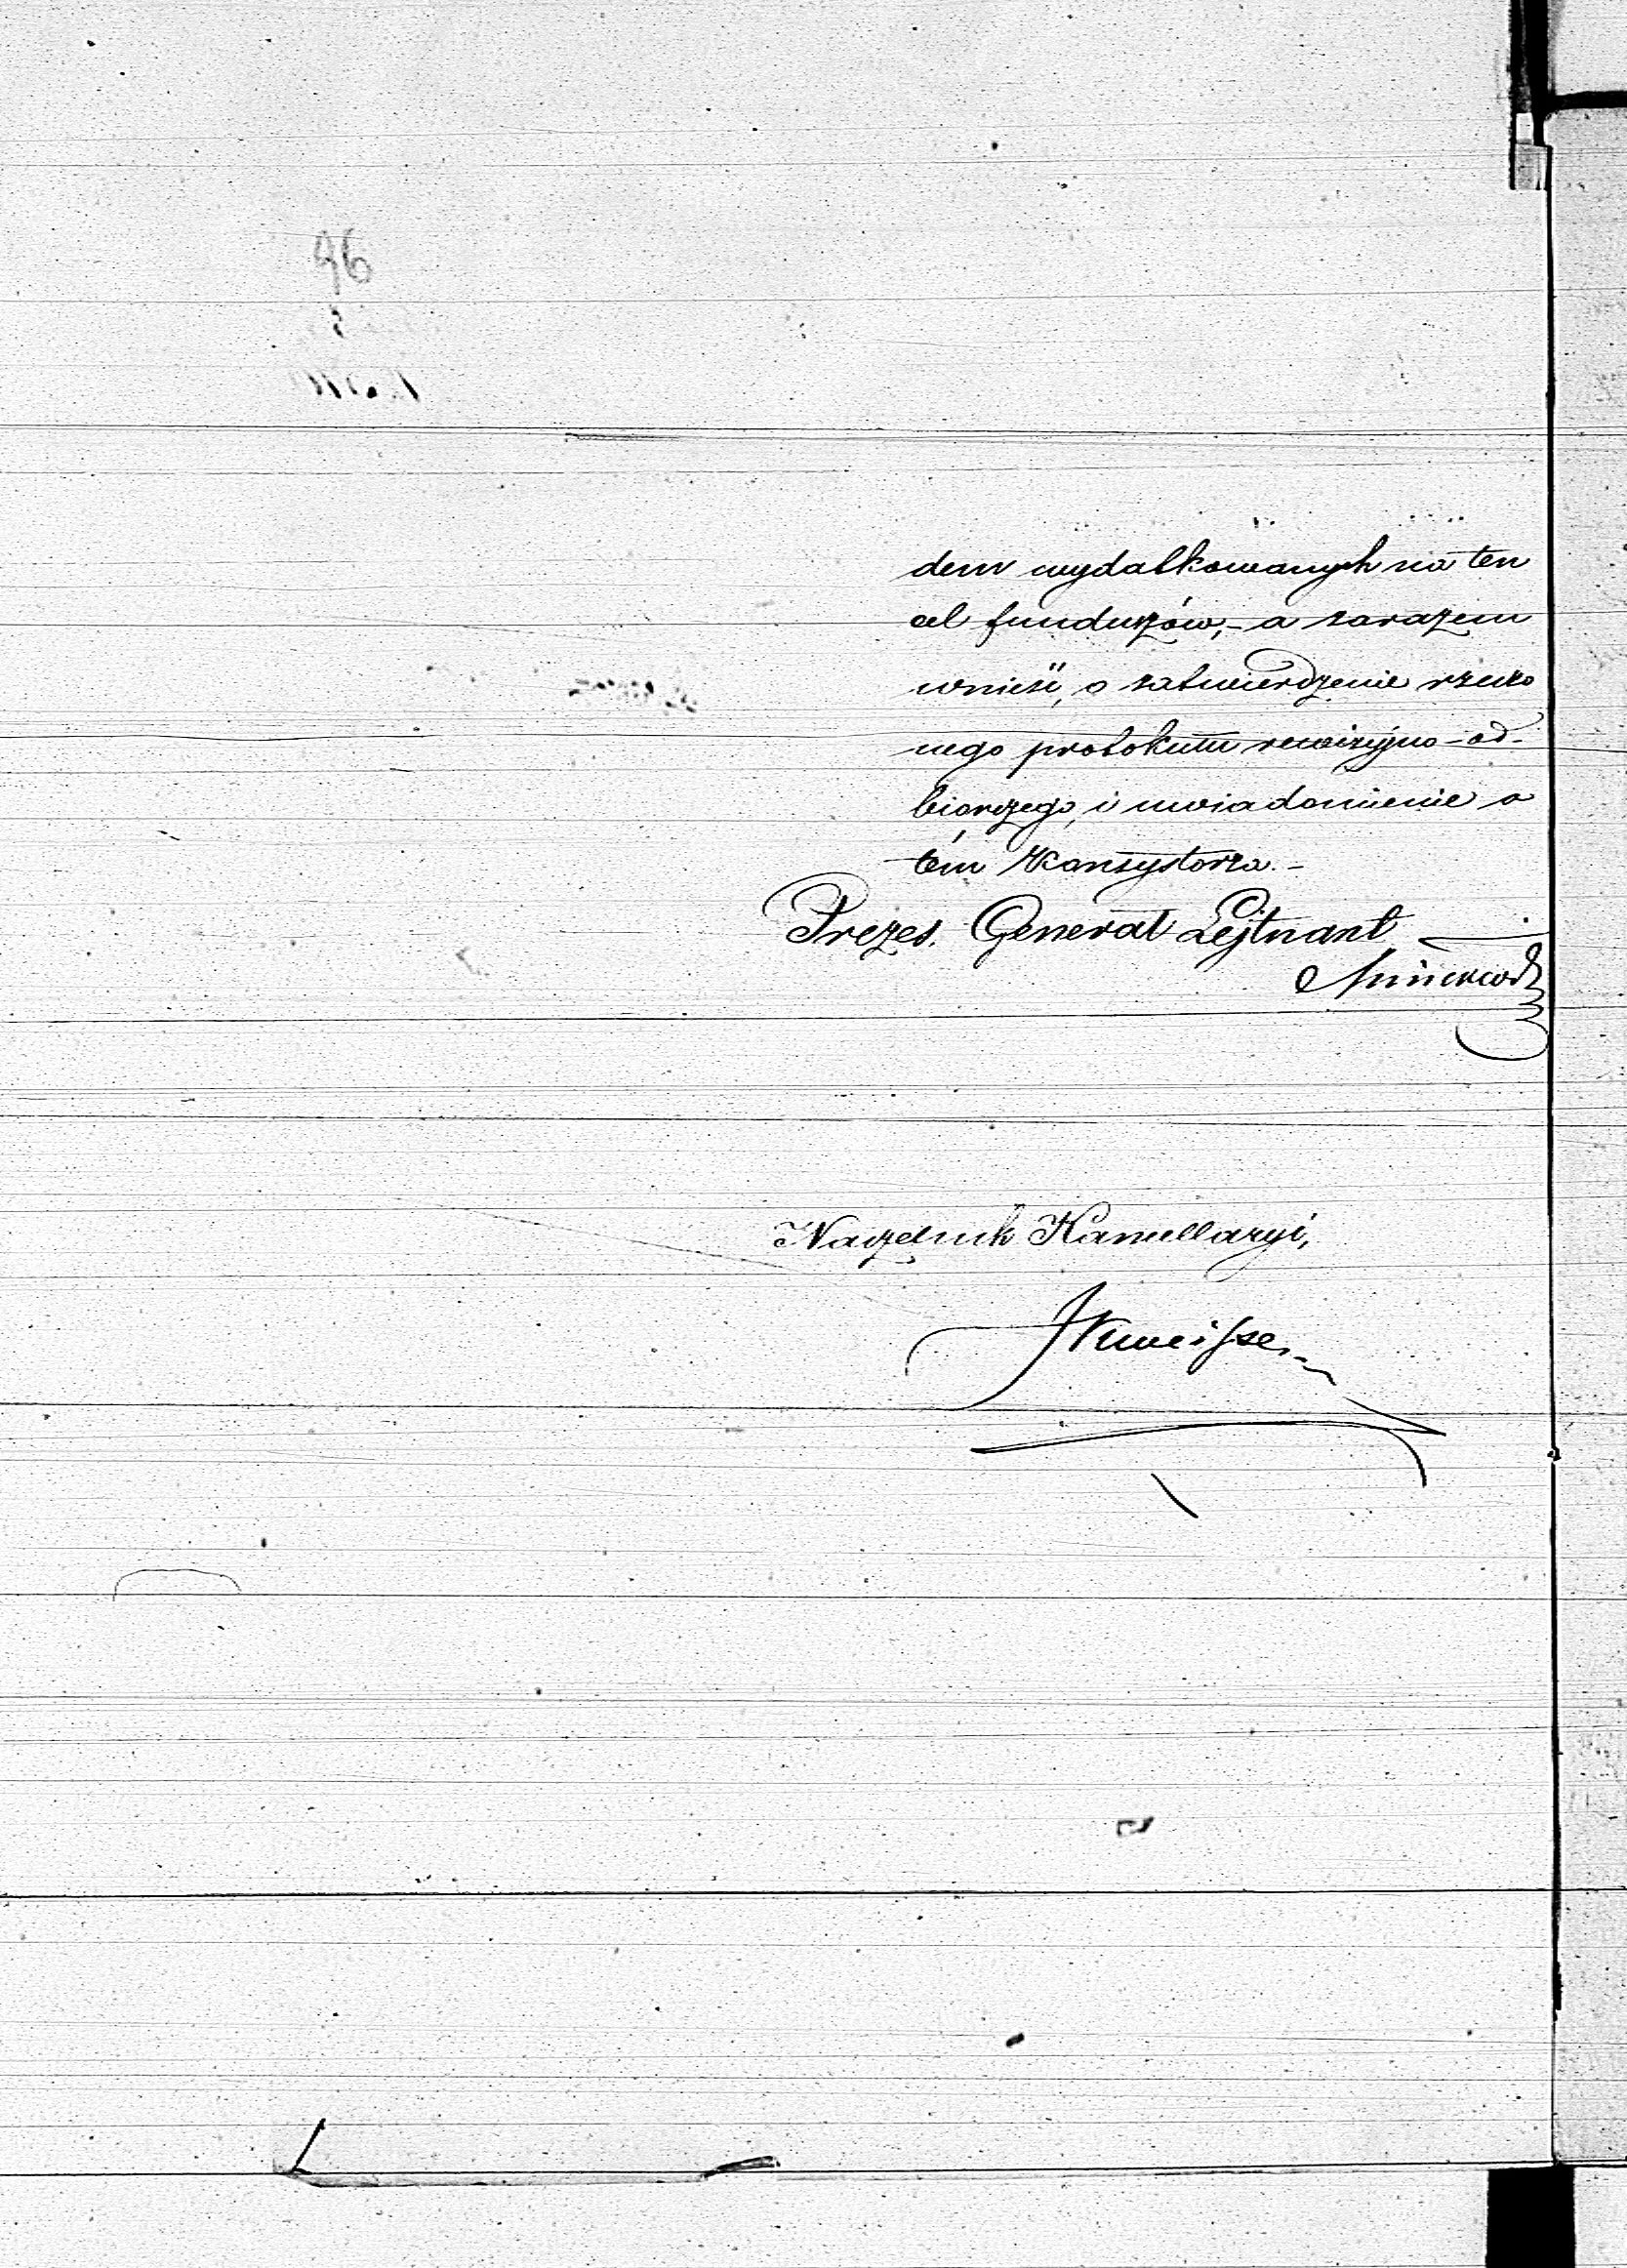 96
dem wydatkowanych na ten
cel funduszów, – a zarazem
wnieść, o zatwierdzenie rzeczo
nego protokułu rewizyjno – od-
biorczego, i uwiadomienie o
tém Konsystorza. –
Prezes, Generał Lejtnant
Naczelnik Kancellaryi,